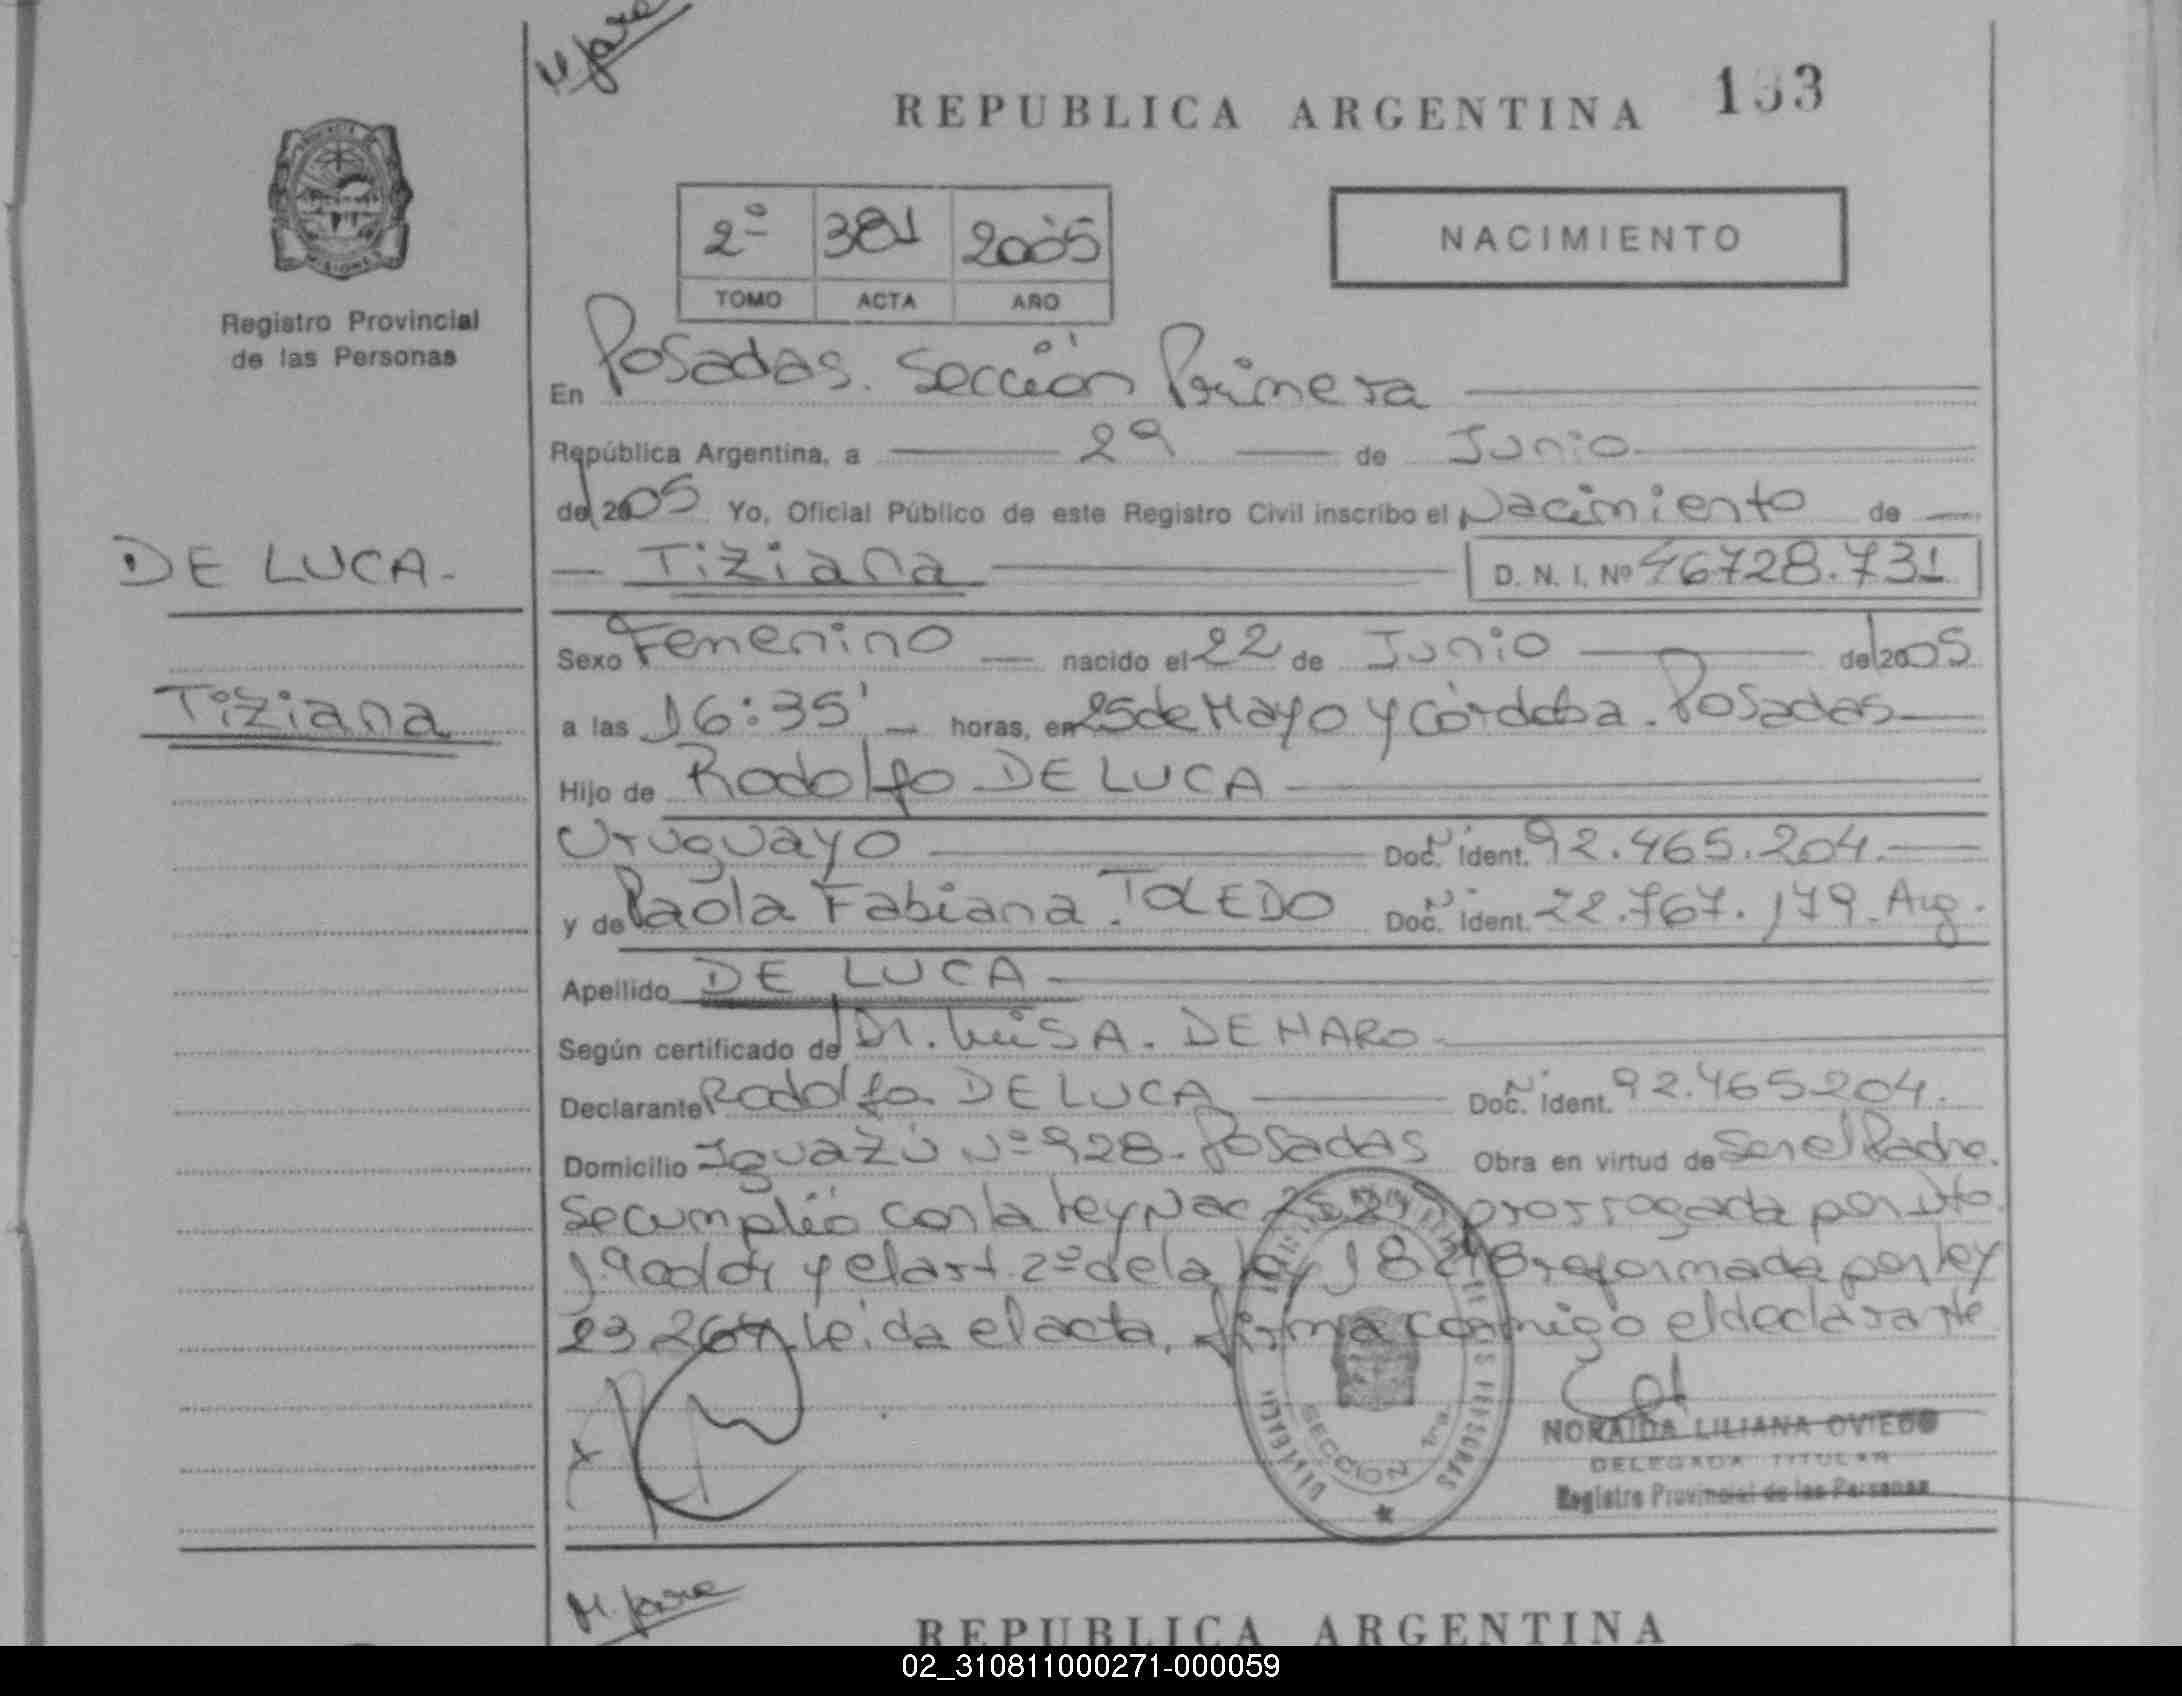 REPUBLICA ARGENTINA
Registro Provincial
de las Personas
2º 381 2005
TOMO ACTA AÑO
NACIMIENTO
En Posadas. Sección Primera
República Argentina, a 29 de Junio
del 2005 Yo, Oficial Público de este Registro Civil inscribo el Nacimiento de
Tiziana D. N. I. Nº 46728.731
DE LUCA.
Tiziana
Sexo Femenino nacido el 22 de Junio del 2005
a las 16:35' horas, en 25 de Mayo y Córdoba. Posadas
Hijo de Rodolfo DE LUCA
Uruguayo Doc. Ident. 92.465.204.
y de Paola Fabiana TOLEDO Doc. Ident. 22.767.179. Arg.
Apellido DE LUCA
Según certificado del Dr. Luis A. DEMARO
Declarante Rodolfo DE LUCA Doc. Ident. 92.465204.
Domicilio Iguazú Nº 928. Posadas Obra en virtud de Ser el Padre.
Se cumplió con la Ley Nac prorrogada por Dto.
y el art. 2º de la Ley 18248 reformada por ley
23.264. Leída el acta, firma conmigo el declarante
SECCION 1ra.
NORAIDA LILIANA OVIEDO
DELEGADA TITULAR
Registro Provincial de las Personas
REPUBLICA ARGENTINA
02_310811000271-000059